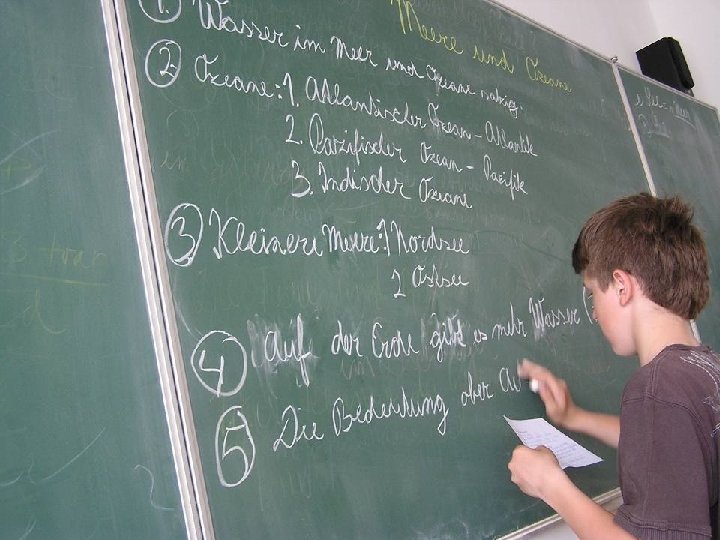 Meere und Ozeane
1. Wasser im Meer und Ozeane salzig.
2. Ozeane: 1. Atlantischer Ozean - Atlantik
2. Pazifischer Ozean - Pazifik
3. Indischer Ozeane
3 Kleinere Meere: 1 Nordsee
2 Ostsee
4 Auf der Erde gibt es mehr Wasser
5 Die Bedeutung aber